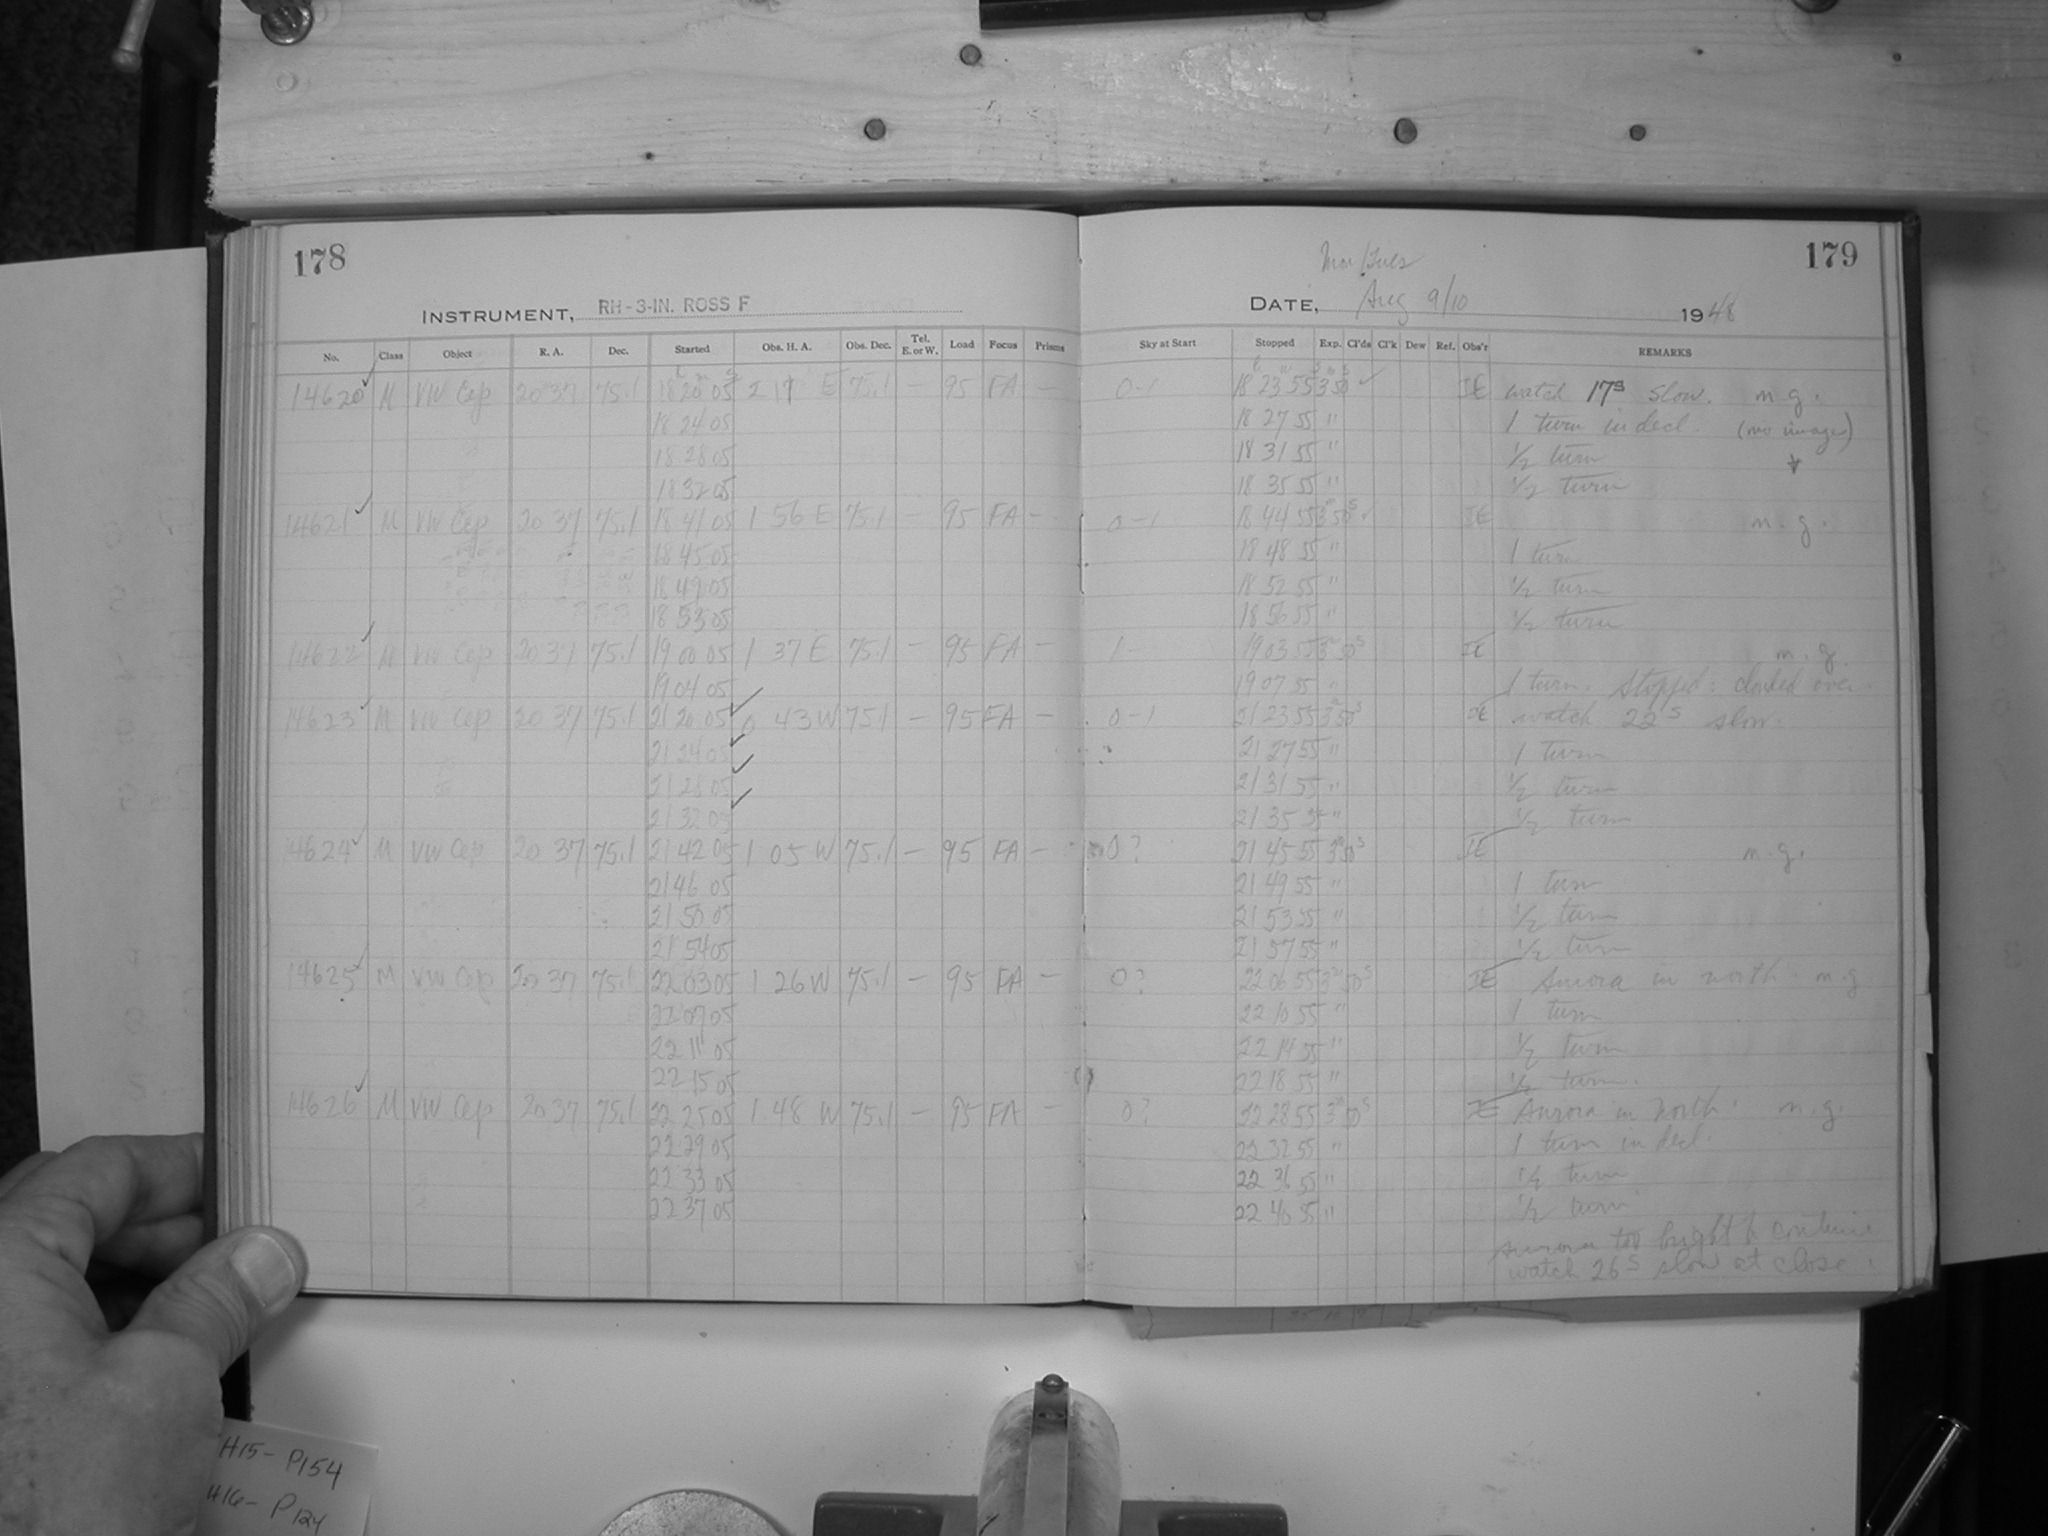 178
INSTRUMENT, RH-3-IN. ROSS F
No. Class Object R. A. Dec. Started Obs. H. A. Obs. Dec. Tel. E. or W. Load Focus Prisms
14620 M VW Cep 20 37 75.1 18 20 05 2 17 E 75.1 — 95 FA —
18 24 05
18 28 05
18 32 05
14621 M VW Cep 20 37 75.1 18 41 05 1 56 E 75.1 — 95 FA —
18 45 05
18 49 05
18 53 05
14622 M VW Cep 20 37 75.1 19 00 05 1 37 E 75.1 — 95 FA —
19 04 05
14623 M VW Cep 20 37 75.1 21 20 05 0 43 W 75.1 — 95 FA —
21 24 05
21 28 05
21 32 05
14624 M VW Cep 20 37 75.1 21 42 05 1 05 W 75.1 — 95 FA —
21 46 05
21 50 05
21 54 05
14625 M VW Cep 20 37 75.1 22 03 05 1 26 W 75.1 — 95 FA —
22 07 05
22 11 05
22 15 05
14626 M VW Cep 20 37 75.1 22 25 05 1 48 W 75.1 — 95 FA —
22 29 05
22 33 05
22 37 05
179
Mon/Tues
DATE, Aug 9/10 1948
Sky at Start Stopped Exp. Cl'ds Cl'k Dew Ref. Obs'r REMARKS
0-1 18 23 55 3m 50s ✓ IE watch 17s slow. m.g.
18 27 55 " 1 turn in decl. (no images)
18 31 55 " 1/2 turn
18 35 55 " 1/2 turn
0-1 18 44 55 3m 50s ✓ IE m.g.
18 48 55 " 1 turn
18 52 55 " 1/2 turn
18 56 55 " 1/2 turn
1- 19 03 55 3m 50s IE m.g.
19 07 55 " 1 turn. Stopped: clouded over.
0-1 21 23 55 3m 50s IE watch 22s slow.
21 27 55 " 1 turn
21 31 55 " 1/2 turn
21 35 55 " 1/2 turn
0? 21 45 55 3m 50s IE m.g.
21 49 55 " 1 turn
21 53 55 " 1/2 turn
21 57 55 " 1/2 turn
0? 22 06 55 3m 50s IE Aurora in north. m.g
22 10 55 " 1 turn
22 14 55 " 1/2 turn
22 18 55 " 1/2 turn.
0? 22 28 55 3m 50s IE Aurora in North. m.g.
22 32 55 " 1 turn in decl.
22 36 55 " 1/2 turn
22 40 55 " 1/2 turn
Aurora too bright to continue
watch 26s slow at close.
H15- P154
H16- P124